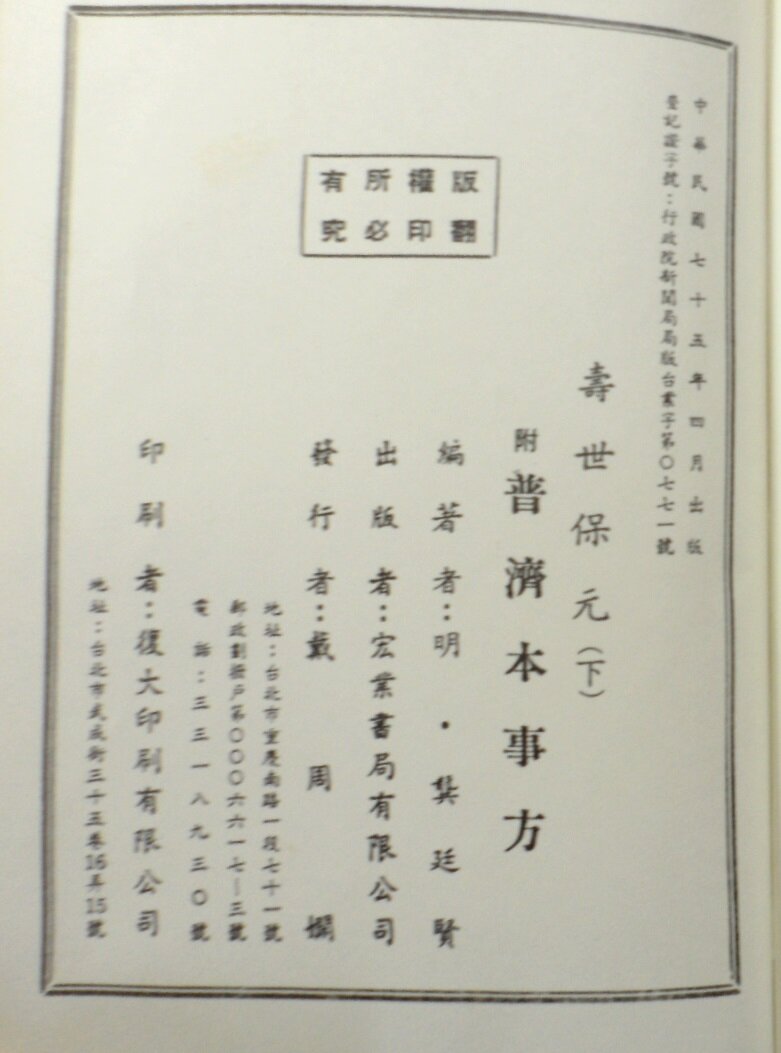 中華民國七十五年四月出版
登記證字號：行政院新聞局局版台業字第〇七七一號
版權所有
翻印必究
壽世保元（下）
附普濟本事方
編著者：明・龔廷賢
出版者：宏業書局有限公司
發行者：戴周爛
地址：台北市重慶南路一段七十一號
郵政劃撥戶第〇〇〇六六一七—三號
電話：三三一八九三〇號
印刷者：復大印刷有限公司
地址：台北市武成街三十五巷16弄15號